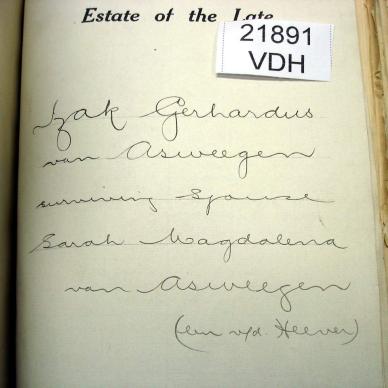 Estate of the Late
21891
VDH
Izak Gerhardus
van Asweegen
surviving spouse
Sarah Magdalena
van Asweegen
(bn v/d. Heever)